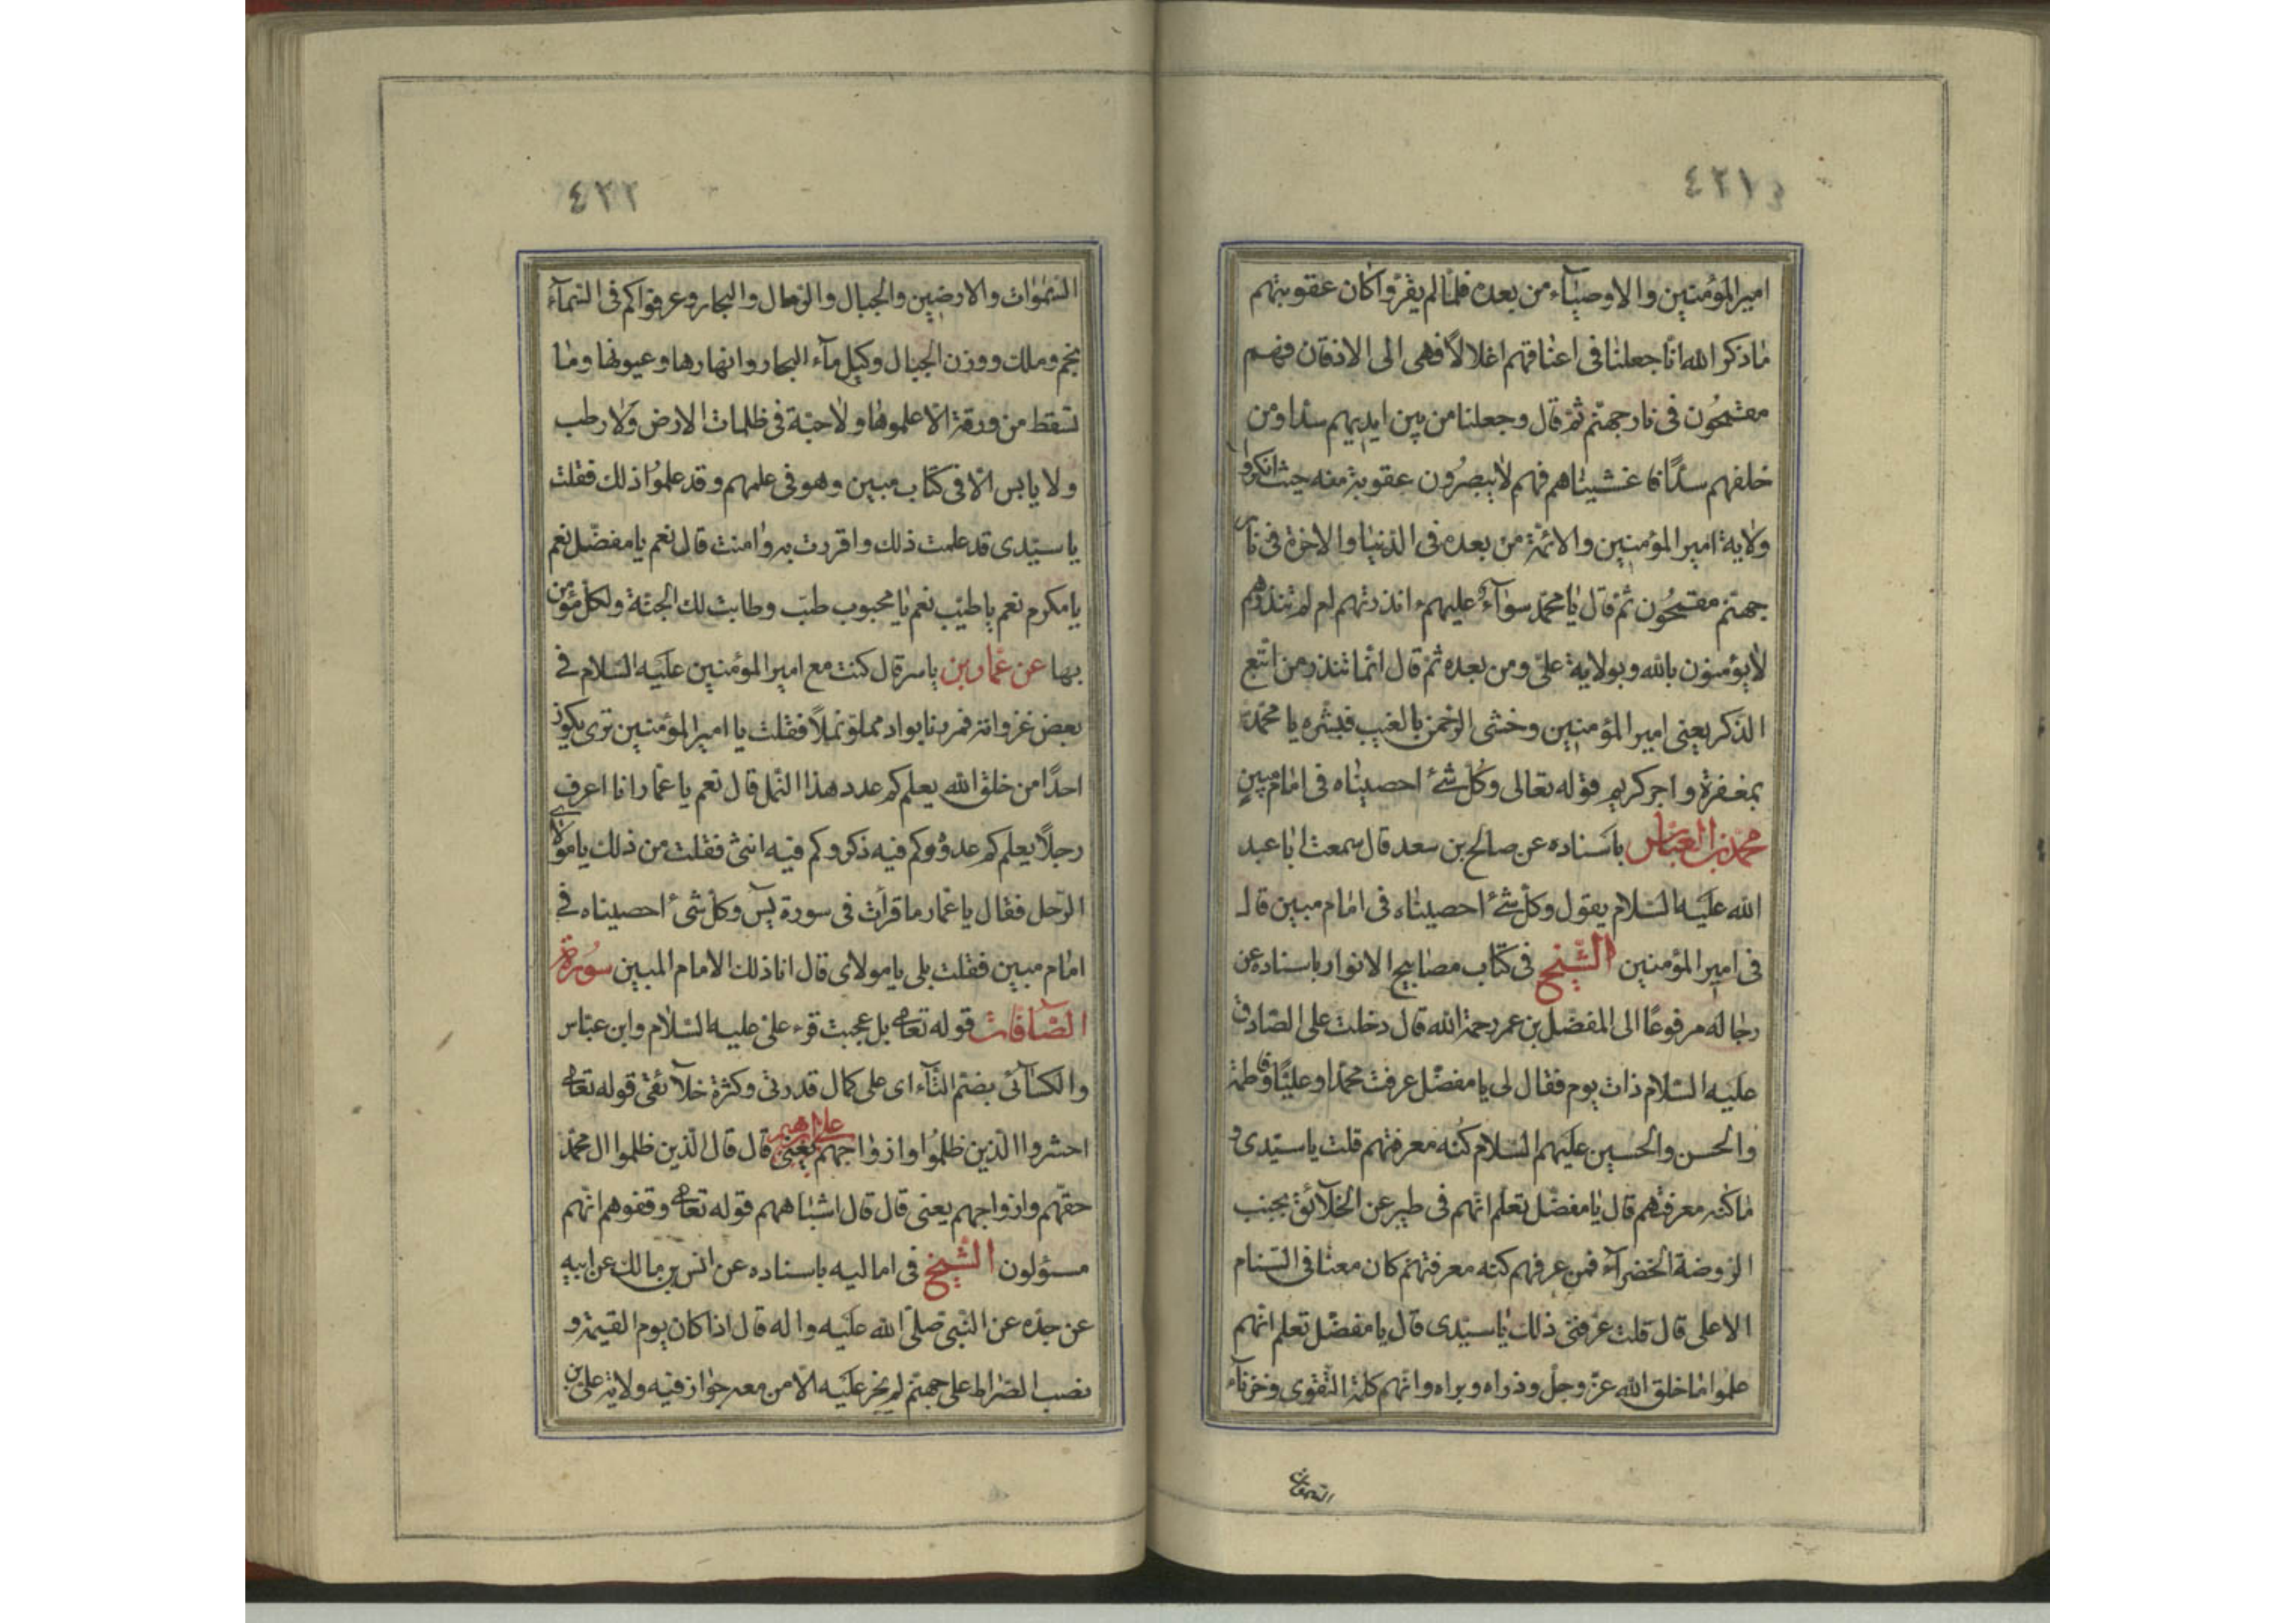 ٤٢١
امير المؤمنين والاوصيآء من بعده فلما لم يقرّوا كان عقوبتهم
ما ذكر الله انا جعلنا فى اعناقهم اغلالاً فهى الى الاذقان فهم
مقمحون فى نار جهنم ثم قال وجعلنا من بين ايديهم سدا ومن
خلفهم سدًا فاغشيناهم فهم لا يبصرون عقوبة منه حيث انكروا
ولاية امير المؤمنين والائمة من بعده فى الدنيا والاخرة فى نار
جهنم مقمحون ثم قال يا محمد سوآء عليهم ءانذرتهم ام لم تنذرهم
لا يؤمنون بالله وبولاية علىّ ومن بعده ثم قال انما تنذر من اتبع
الذكر يعنى امير المؤمنين وخشى الرحمن بالغيب فبشره يا محمد
بمغفرة واجر كريم قوله تعالى وكل شئ احصيناه فى امام مبين
محمد بن العباس باسناده عن صالح بن سعد قال سمعت ابا عبد
الله عليه السلام يقول وكل شئ احصيناه فى امام مبين قال
فى امير المؤمنين الشيخ فى كتاب مصابيح الانوار باسناده عن
رجاله مرفوعًا الى المفضل بن عمر رحمة الله قال دخلت على الصادق
عليه السلام ذات يوم فقال لى يا مفضل عرفت محمدا وعليًا وفاطمة
والحسن والحسين عليهم السلام كنه معرفتهم قلت يا سيدى و
ما كنه معرفتهم قال يا مفضل تعلم انهم فى طير عن الخلآئق بجنب
الروضة الخضرآء فمن عرفهم كنه معرفتهم كان معنا فى السنام
الاعلى قال قلت عرفنى ذلك يا سيدى قال يا مفضل تعلم انهم
علموا ما خلق الله عز وجل وذراه وبراه وانهم كلمة التقوى وخزنآء
السموات
٤٢٢
السموات والارضين والجبال والرمال والبحار وعرفوا كم فى السمآء
نجم وملك ووزن الجبال وكيل مآء البحار وانهارها وعيونها وما
تسقط من ورقة الا علموها ولا حبة فى ظلمات الارض ولا رطب
ولا يابس الا فى كتاب مبين وهو فى علمهم وقد علموا ذلك فقلت
يا سيدى قد علمت ذلك واقررت به وامنت قال نعم يا مفضل نعم
يا مكرم نعم يا طيب نعم يا محبوب طبت وطابت لك الجنة ولكل مؤمن
بها عن عمار بن ياسر قال كنت مع امير المؤمنين عليه السلام فى
بعض غزواته فمررنا بواد مملو نملاً فقلت يا امير المؤمنين ترى يكون
احدًا من خلق الله يعلم كم عدد هذا النمل قال نعم يا عمار انا اعرف
رجلاً يعلم كم عدده وكم فيه ذكر وكم فيه انثى فقلت من ذلك يا مولاى
الرجل فقال يا عمار ما قرأت فى سورة يس وكل شئ احصيناه فى
امام مبين فقلت بلى يا مولاى قال انا ذلك الامام المبين سورة
الصافات قوله تعالى بل عجبت قرء على عليه السلام وابن عباس
والكسآئى بضم التآء اى على كمال قدرتى وكثرة خلآئقى قوله تعالى
احشروا الذين ظلموا وازواجهم يعنى على بن ابراهيم قال قال الذين ظلموا ال محمد
حقهم وازواجهم يعنى قال قال اشباههم قوله تعالى وقفوهم انهم
مسؤلون الشيخ فى اماليه باسناده عن انس بن مالك عن ابيه
عن جده عن النبى صلى الله عليه واله قال اذا كان يوم القيمة و
نصب الصراط على جهنم لم يجز عليه الا من معه جواز فيه ولاية على بن